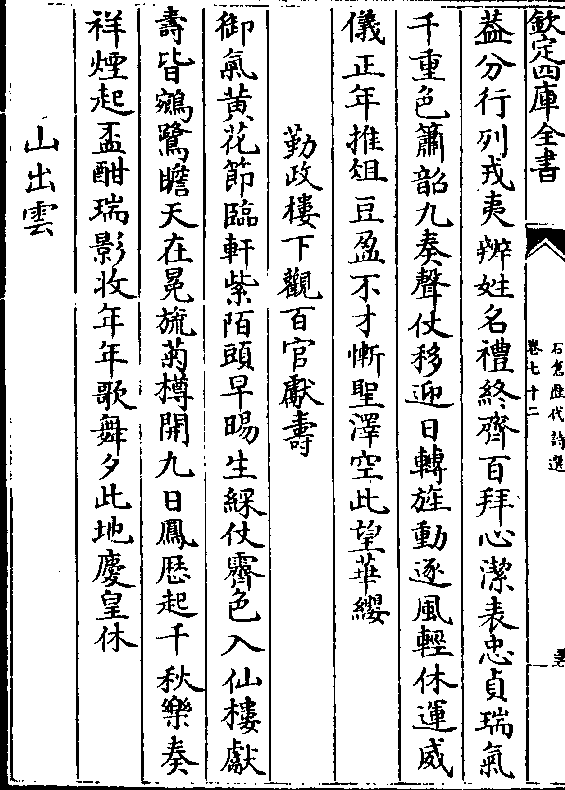 欽定四庫全書
石倉歴代詩選
卷七十二
葢分行列戎夷辨姓名禮終齊百拜心潔表忠貞瑞氣
千重色簫韶九奏聲仗移迎日轉旌動逐風輕休運威
儀正年推俎豆盈不才慚聖澤空此望華纓
勤政樓下觀百官獻壽
御氣黄花節臨軒紫陌頭早暘生綵仗霽色入仙樓獻
壽皆鵷鷺瞻天在冕旒菊樽開九日鳳厯起千秋樂奏
祥煙起盃酣瑞影收年年歌舞夕此地慶皇休
山出雲